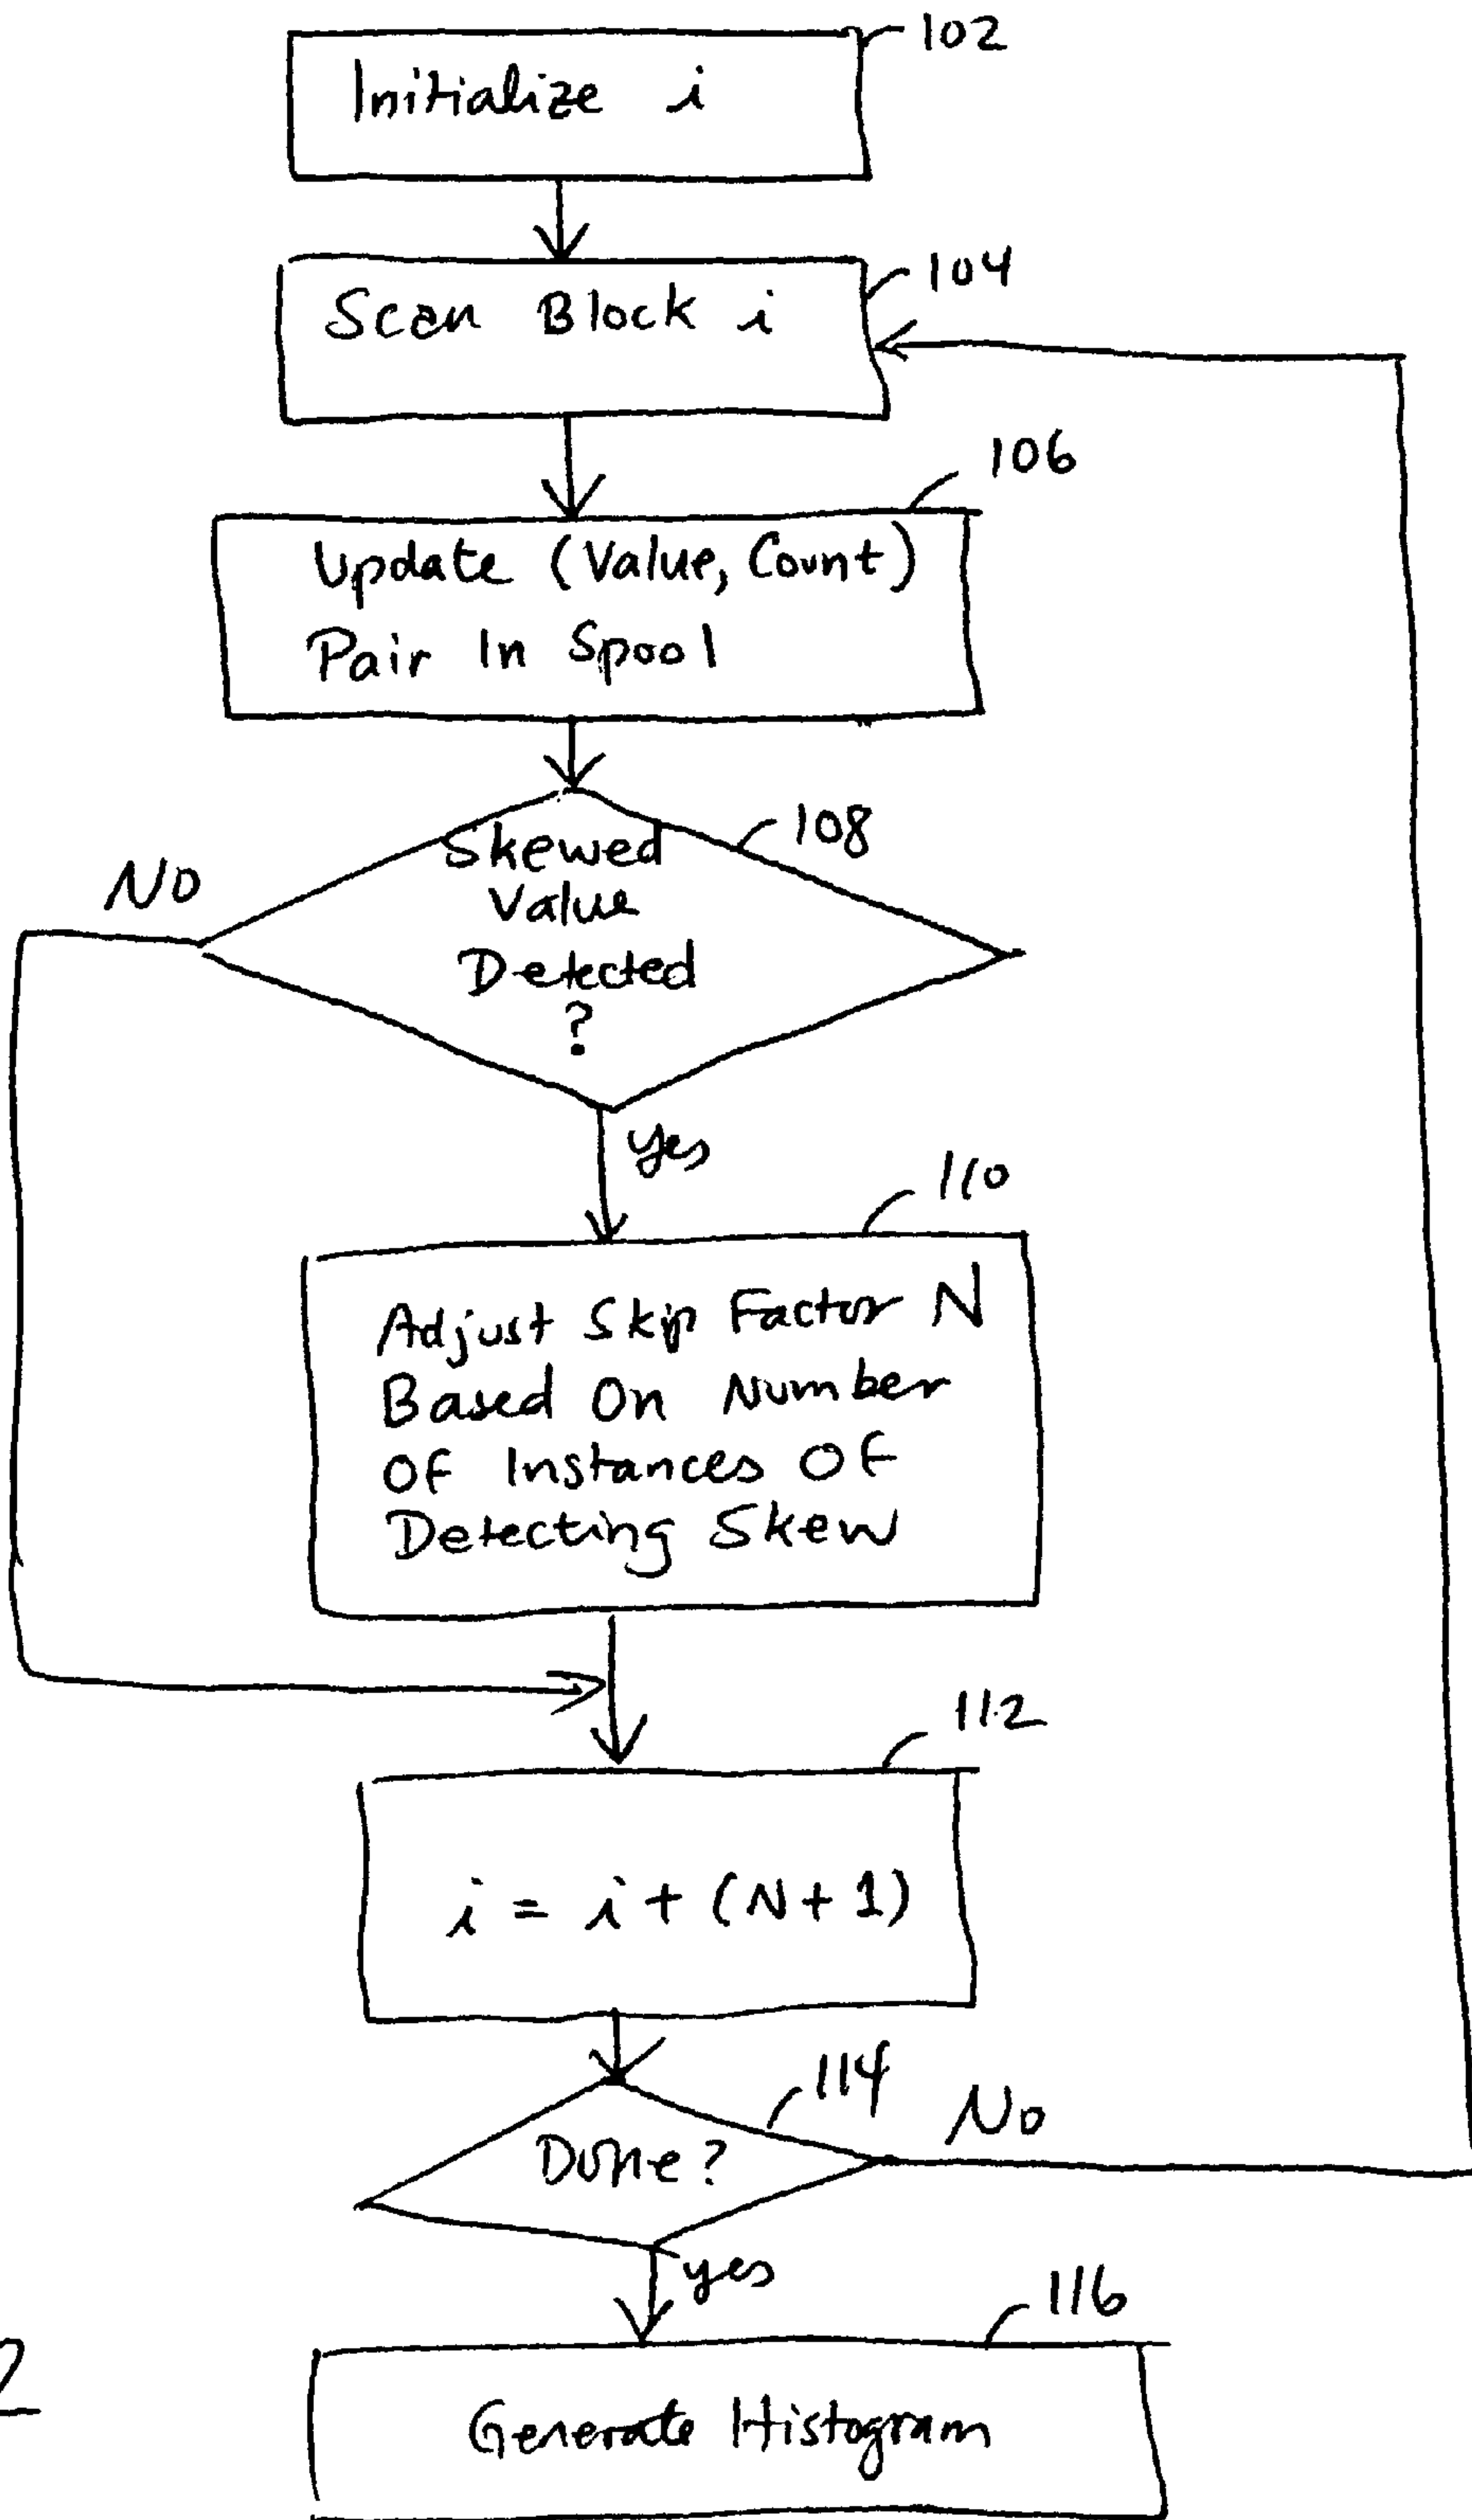 102
Initialize i
104
Scan Block i
106
Update (Value, Count)
Pair In Spool
108
Skewed
Value
Detected
?
No
yes
110
Adjust Skip Factor N
Based On Number
Of Instances Of
Detecting Skew
112
i = i + (N + 1)
114
Done?
No
yes
116
Generate Histogram
2